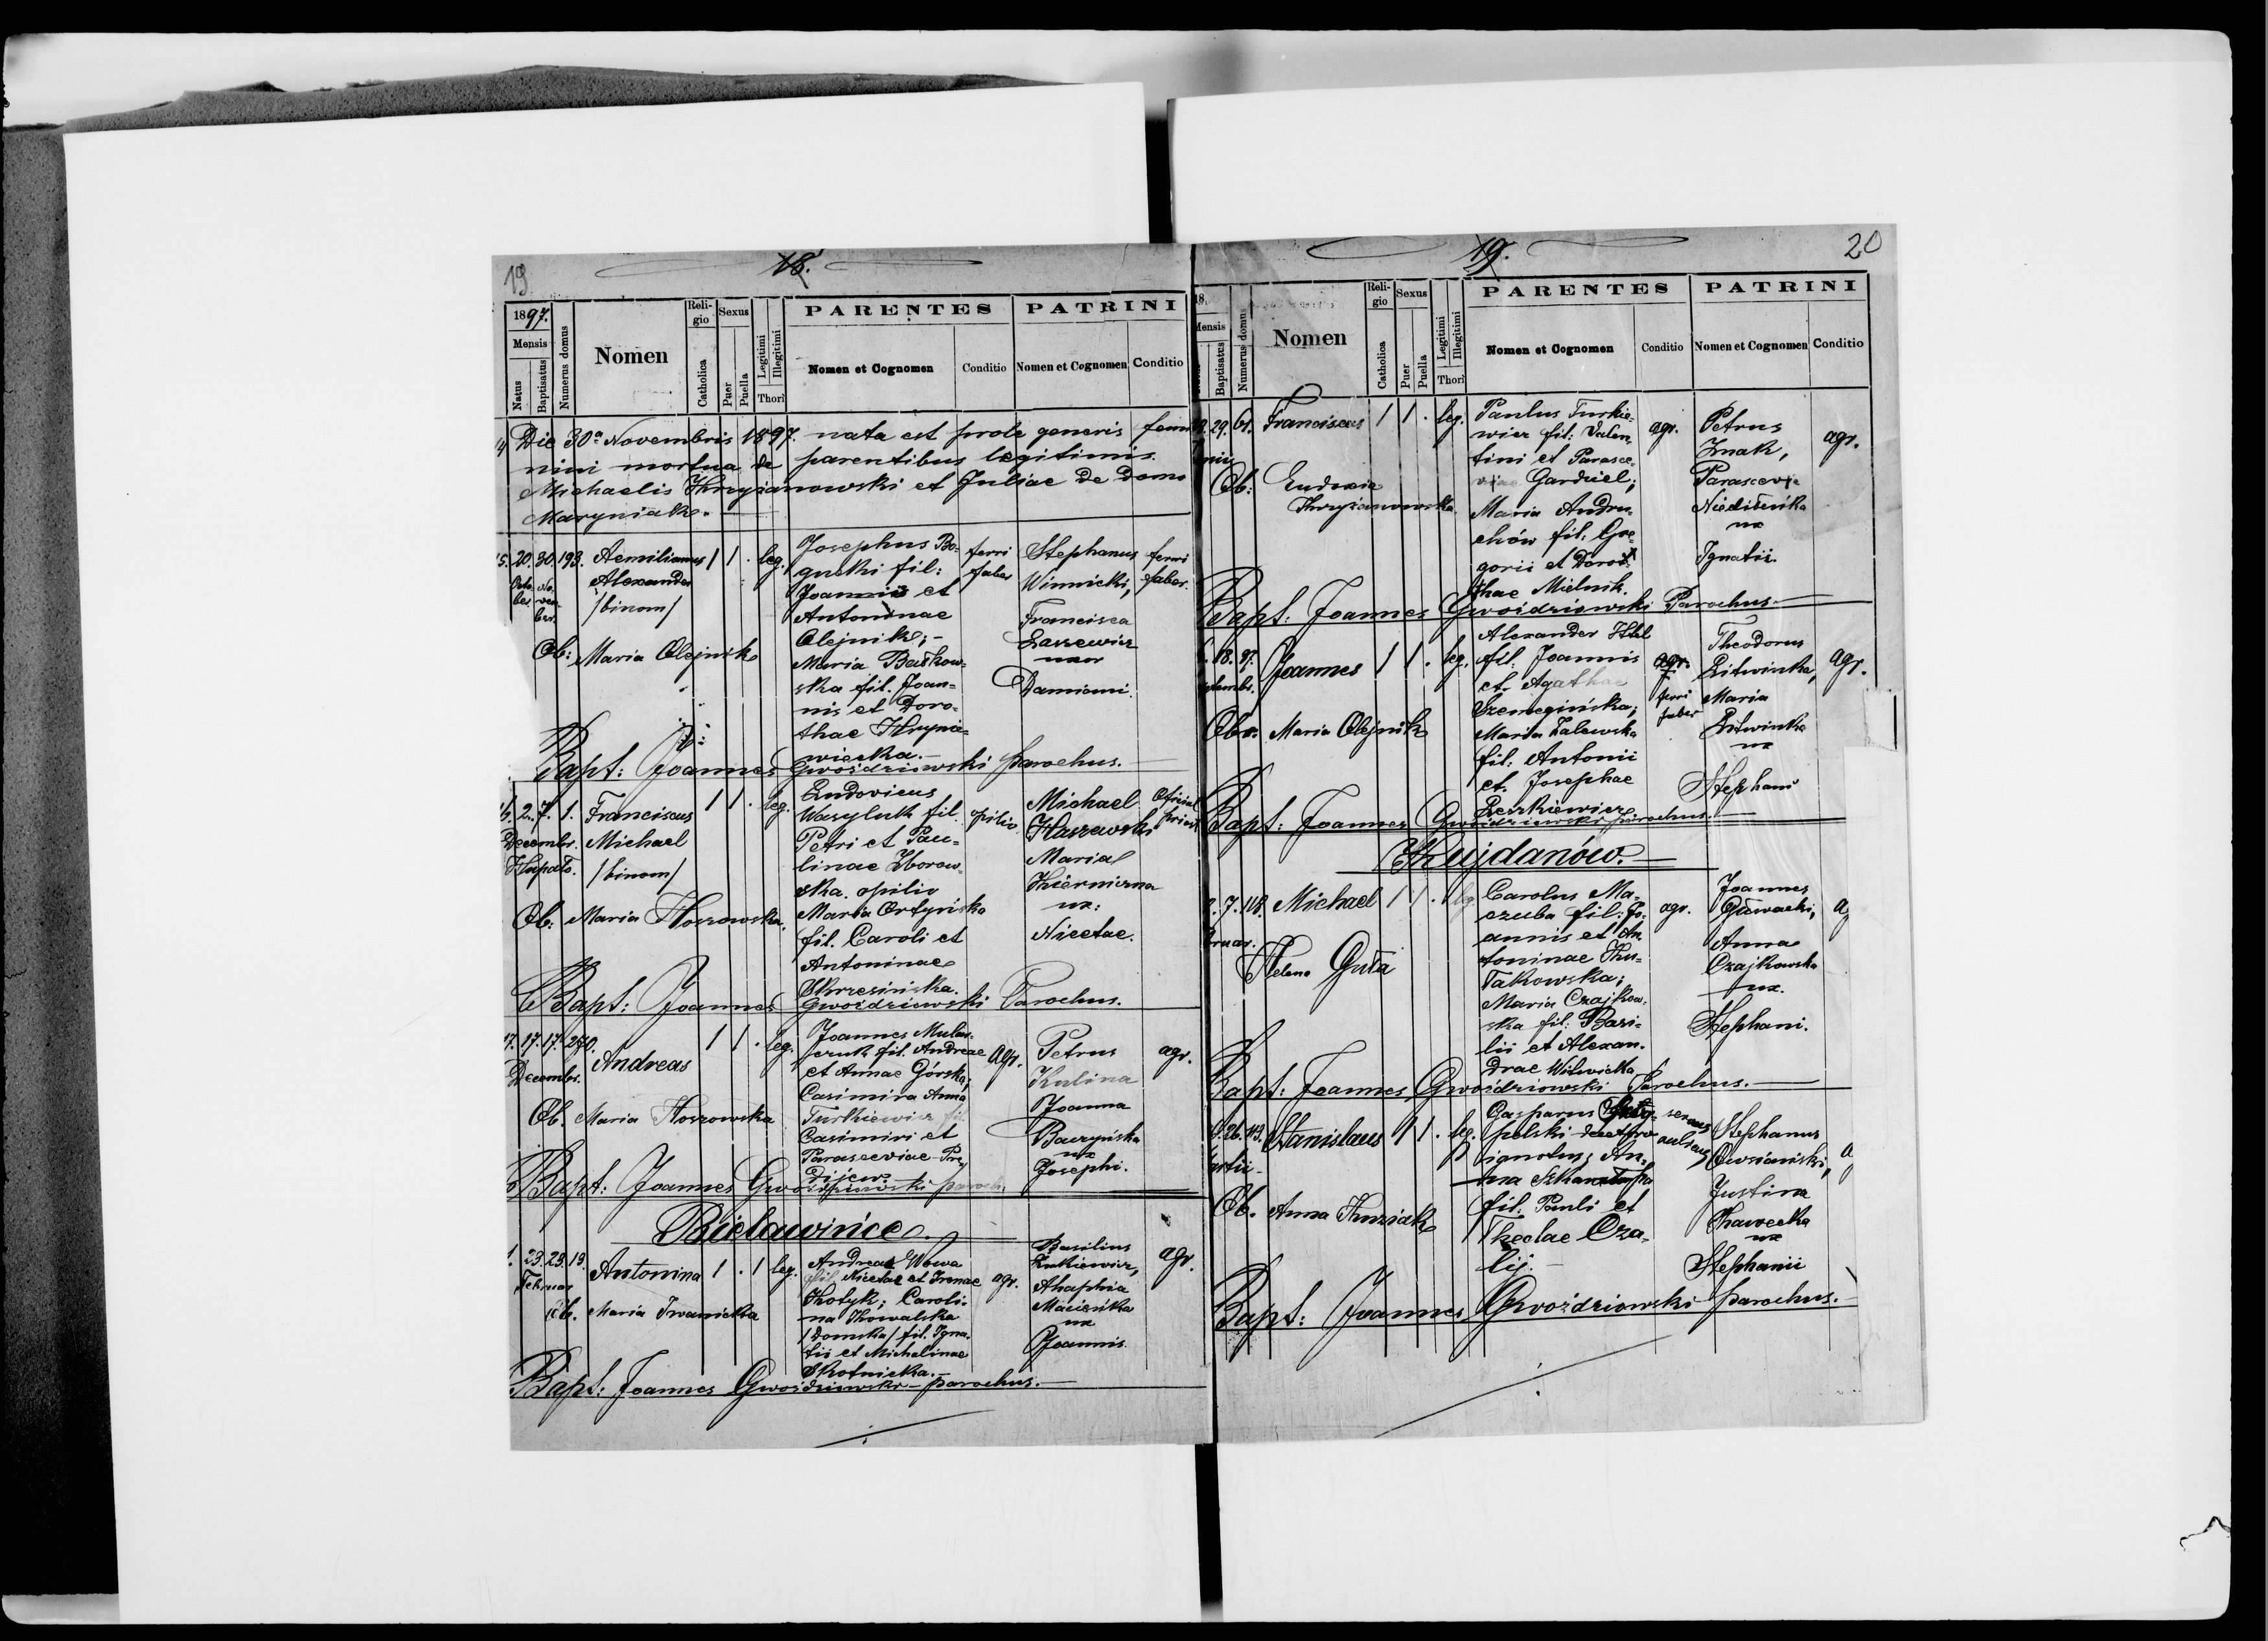 19
18.
1897.
Mensis
Natus
Baptisatus
Numerus domus
Nomen
Religio
Catholica
Sexus
Puer
Puella
Legitimi
Illegitimi
Thori
PARENTES
Nomen et Cognomen
Conditio
PATRINI
Nomen et Cognomen
Conditio
Die 30a Novembris 1897. nata est prole generis femi
nini mortua de parentibus legitimis
Michaelis Kryżanowski et Juliae de domo
Maryniak.
20. 30. 193.
Octo-
ber
No-
vem-
ber.
Aemilianus
Alexander
/binom/
1 1 . leg.
Ob: Maria Olejnik
Josephus Bo-
gucki fil:
Joannis et
Antoninae
Olejnik; -
Maria
ska fil. Joan-
nis et Doro-
thae Hrynie-
wiecka. -
ferri
faber
Stephanus
Winnicki,
Francisca
Łaszewicz
uxor
Damiani.
ferri
faber.
Bapt: Joannes Gwoździowski parochus.
2. 7. 1.
Decembr.
Franciscus
Michael
/binom/
1 1 . leg.
Ob: Maria Koszowska.
Ludovicus
Wasyluk fil.
Petri et Pau-
linae Zborow-
ska. opilio
Maria Ortyńska
fil. Caroli et
Antoninae
Skrzesińska.
opilio
Michael
Haszewski
Maria
ux:
Nicetae.
Bapt: Joannes Gwoździowski Parochus.
17. 17. 17. 270.
Decembr.
Andreas
1 1 . leg.
Ob. Maria Koszowska
Joannes Mular-
czuk fil. Andreae
et Annae Górska;
Casimira Anna
Turkiewicz fil.
Casimiri et
Parasceviae
agr.
Petrus
Kulina
Joanna
Baczyńska
ux
Josephi.
agr.
Bapt: Joannes Gwoździowski paroch.
Bielawińce.
1. 23. 23. 19.
Februar
Antonina
1 . 1 leg.
Ob. Maria Iwanicka
Andreas Wowa
fil. Nicetae et Irenae
Kotyk; Caroli-
na Kowalska
/Domska/ fil. Igna-
tii et Michalinae
Skotnicka. -
agr.
Basilius
Żukiewicz,
Ahaphia
Macieńka
ux
Joannis.
agr.
Bapt: Joannes Gwoździowski - parochus. -
19.
20
18
Mensis
Baptisatus
Numerus domus
Nomen
Religio
Catholica
Sexus
Puer
Puella
Legitimi
Illegitimi
Thori
PARENTES
Nomen et Cognomen
Conditio
PATRINI
Nomen et Cognomen
Conditio
29. 61. Franciscus 1 1 . leg.
Ob: Eudoxia
Kryżanowska.
Paulus Turkie-
wicz fil: Valen-
tini et Parasce-
viae Gardziel;
Maria Andru-
chów fil. Gre-
gorii et Doro-
thae Mielnik.
agr.
Petrus
Znak,
Parascevia
ux
Ignatii.
agr.
Bapt: Joannes Gwoździowski Parochus -
18. 97. Joannes 1 1 . leg.
Obs. Maria Olejnik
Alexander
fil. Joannis
et Agathae
Szemegińska;
Maria Zalewska
fil. Antonii
et Josephae
Leszkiewicz
agr.
ferri
faber
Theodorus
Litwinka,
Maria
Litwinka
ux
Stephani
agr.
Bapt: Joannes Gwoździowski parochus. -
Kujdanów. -
7. 118. Michael 1 1 . leg.
Helena Guła
Carolus Ma-
czuba fil: Jo-
annis et An-
toninae Ku-
łakowska;
Maria Czajkow-
ska fil: Basi-
lii et Alexan-
drae Witwicka
agr.
Joannes
Głowacki,
Anna
Czajkowska
ux.
Stephani.
Bapt: Joannes Gwoździowski Parochus. -
26. 113. Stanislaus 1 1 . leg.
Ob. Anna Kuziak
Gasparus
polski
ignotus; An-
na
fil. Pauli et
Theclae Oza-
lij. -
servus
aulicus
Stephanus
Owsiański,
Justina
Hawecka
ux
Stephanii
Bapt: Joannes Gwoździowski parochus. -